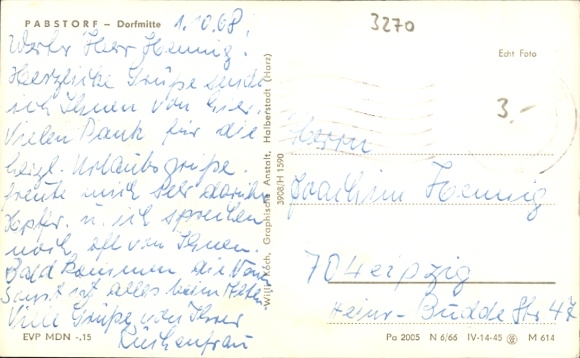 PABSTORF – Dorfmitte
1.10.68.
3270
Werter Herr Hennig.
Herzliche Grüße sende
ich Ihnen von hier.
Vielen Dank für die
herzl. Urlaubsgrüße.
freute mich sehr darüber
u. ich sprechen
noch oft von Ihnen.
Bald kommen die
Sonst ist alles beim Alten
Viele Grüße von Ihrer
Küchenfrau
EVP MDN -,15
Willy Koch, Graphische Anstalt, Halberstadt (Harz)
3908/H 1590
Echt Foto
3.-
Herrn
Joachim Hennig
70 Leipzig
Heinr-Budde Str 47
Pa 2005 N 6/66 IV-14-45 M 614